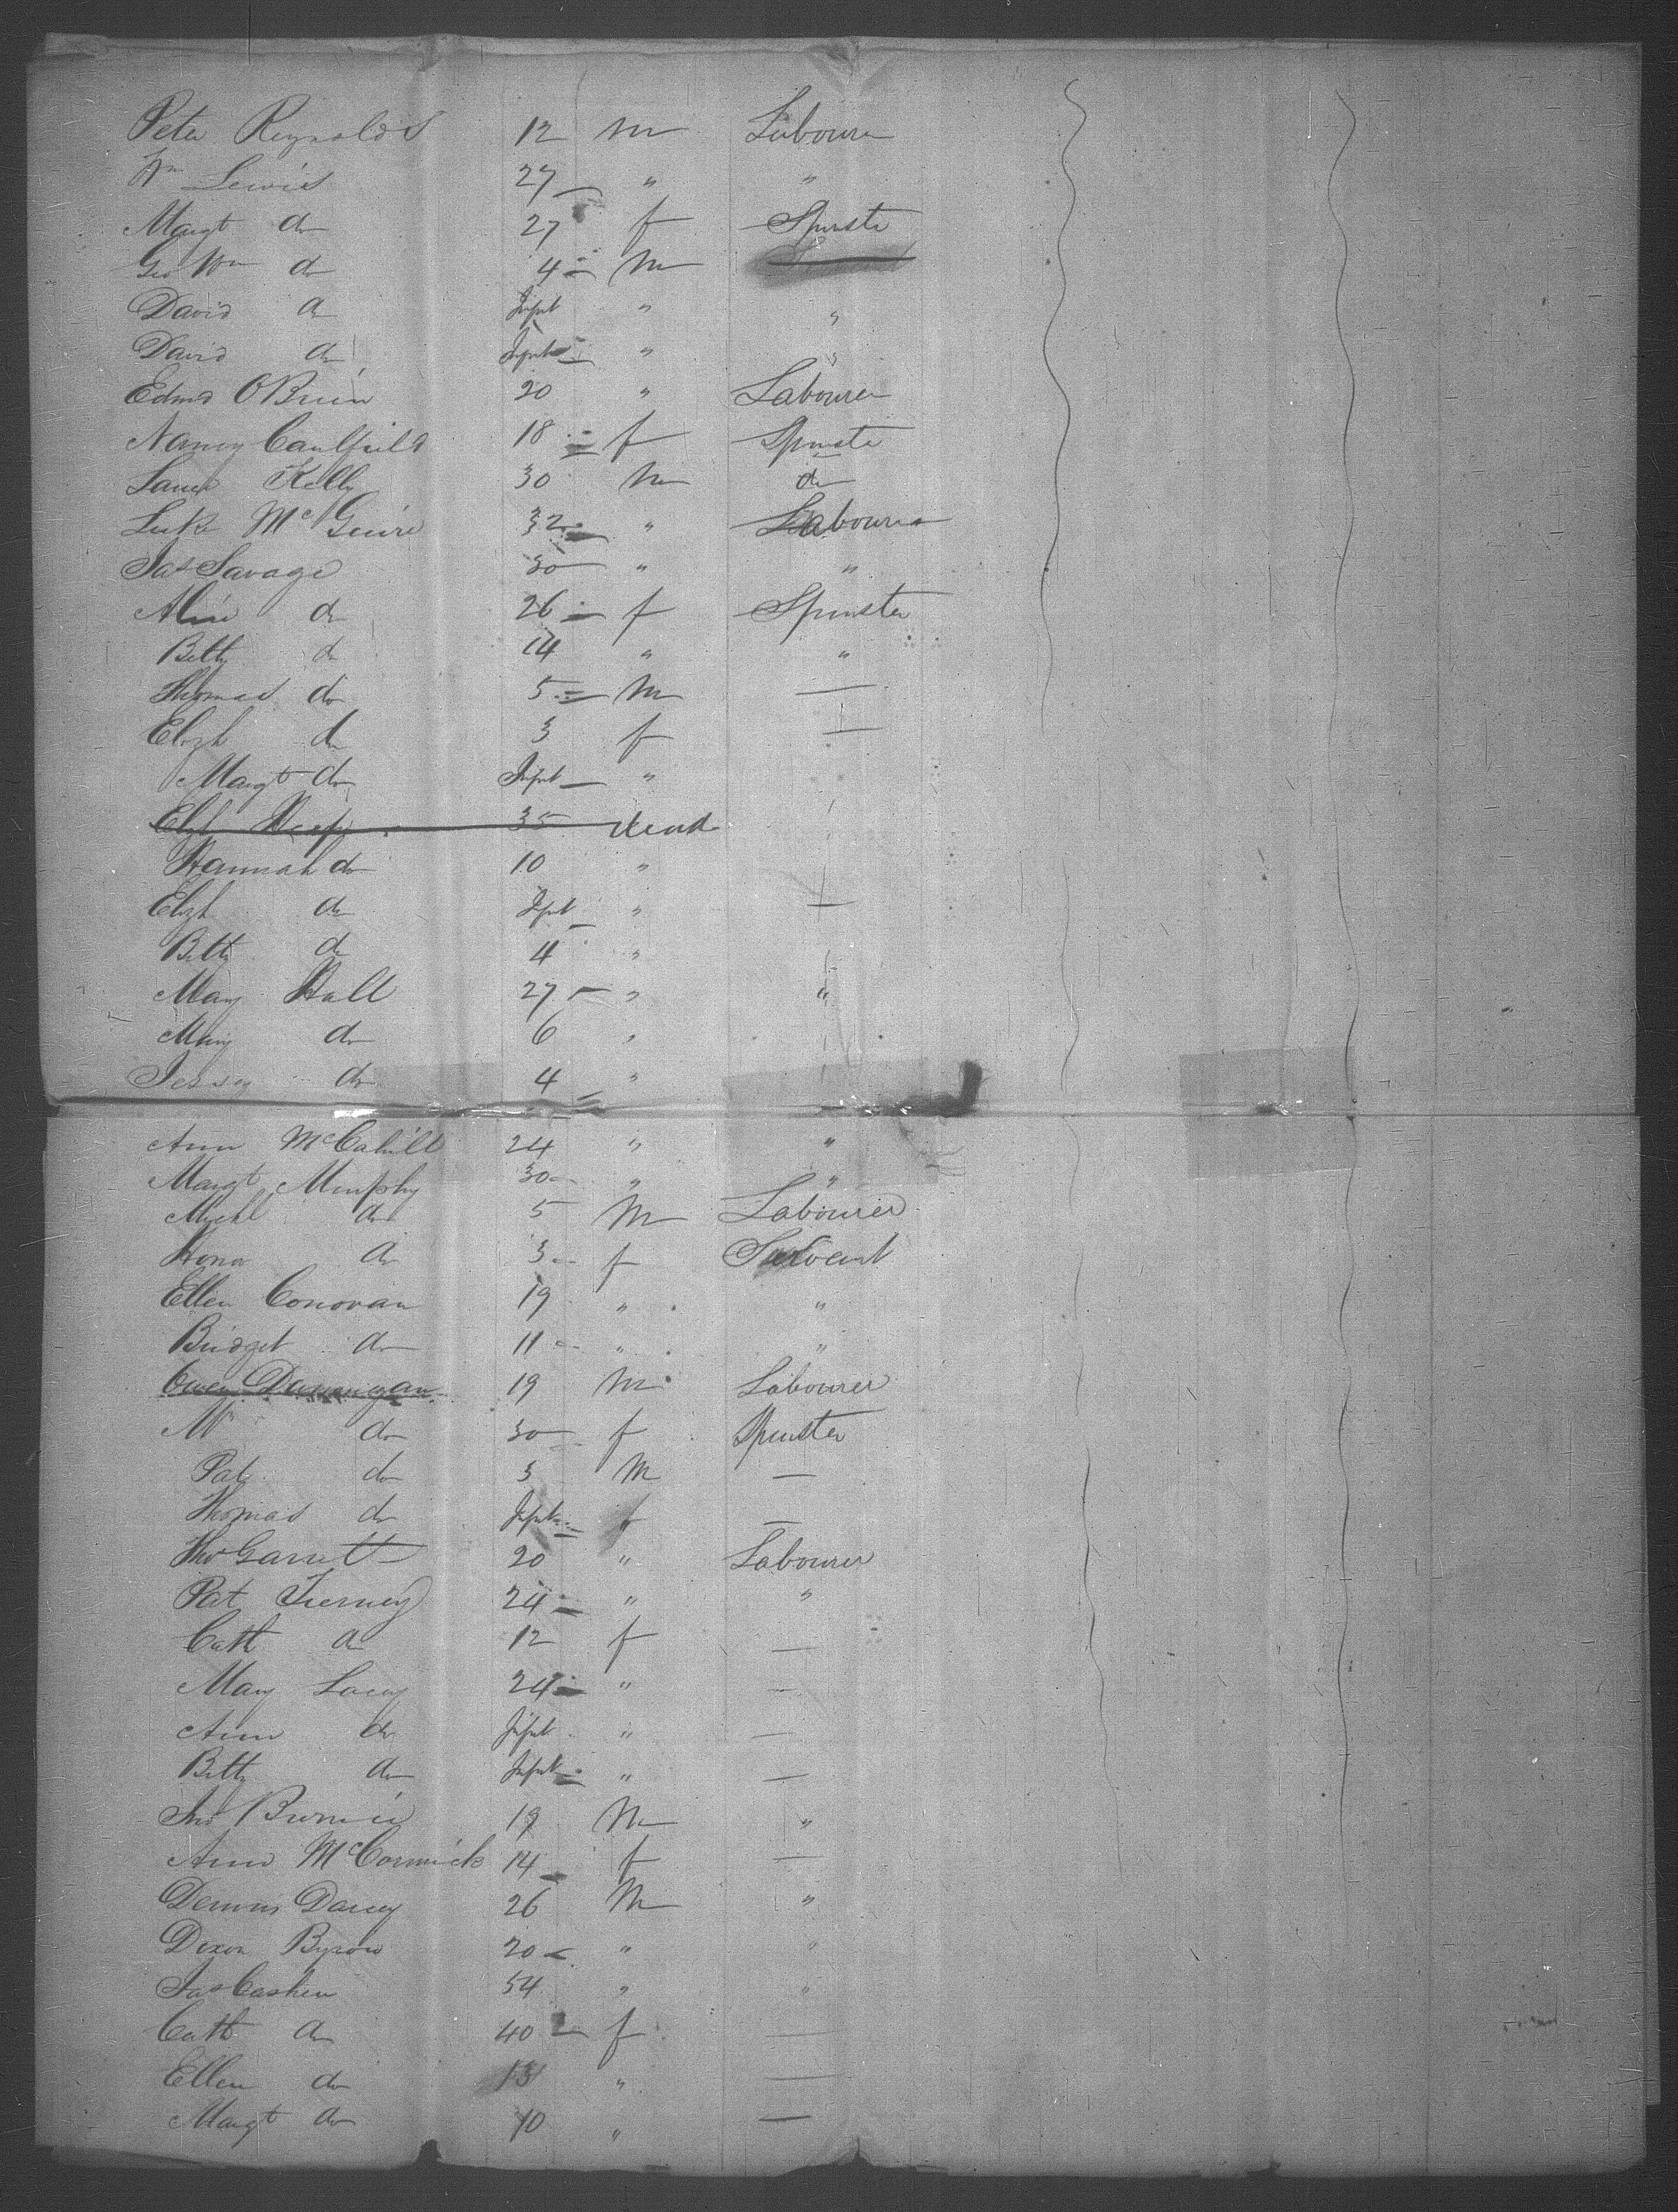 Peter Reynolds 12 m Labourer
Wm Lewis 27 " "
Margt do 27 f Spinster
Geo Wm do 4 m
David do Infnt " "
David do Infnt " "
Edmd O'Brien 20 " Labourer
Nancy Caulfield 18 f Spinster
Kelly 30 m do
Luke McGuire 32 " Labourer
Jas Savage 30 " "
Alice do 26 f Spinster
Betty do 14 " "
Thomas do 5 m —
Elizh do 3 f —
Margt do Infnt "
Elizh 35 dead
Hannah do 10 "
Elizh do Infnt " —
Betty do 4 "
Mary Hall 27 " "
Mary do 6 "
Jessey do 4 "
Ann McCahill 24 " "
Margt Murphy 30 " "
Michl do 5 m Labourer
Hona do 3 f Servant
Ellen Conovan 19 " "
Bridget do 11 " "
Owen Dunnigan 19 m Labourer
do 30 f Spinster
Pat do 3 m —
Thomas do Infnt —
Thos Garrett 20 " Labourer
Pat Tierney 24 " "
Cath do 12 f —
Mary Lacey 24 " —
Ann do Infnt " —
Betty do Infnt " —
Jno 19 m "
Ann McCormick 14 f —
Dennis Darcy 26 m "
Dixon Byron 20 " "
Jas Cashen 54 " "
Cath do 40 f —
Ellen do 13 " —
Margt do 10 " —